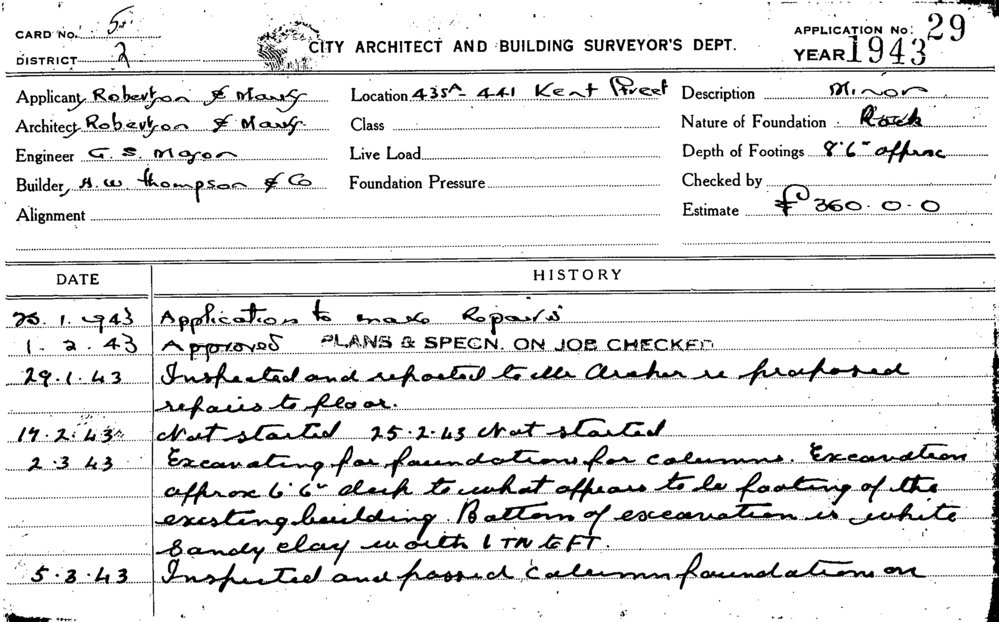 CARD No. 5.
DISTRICT 2
CITY ARCHITECT AND BUILDING SURVEYOR'S DEPT.
APPLICATION No. 29
YEAR 1943
Applicant, Robertson & Marks
Architect, Robertson & Marks
Engineer G. S. Mason
Builder, H. W. Thompson & Co
Alignment
Location 435A - 441 Kent Street
Class
Live Load
Foundation Pressure
Description Minor
Nature of Foundation Rock
Depth of Footings 8'6" approx
Checked by
Estimate £360.0.0
DATE HISTORY
25.1.1943 Application to make Repairs
1.2.43 Approved PLANS & SPECN. ON JOB CHECKED
29.1.43 Inspected and reported to Mr Archer re proposed
repairs to floor.
17.2.43 Not started 25.2.43 Not started
2.3.43 Excavating for foundations for columns. Excavation
approx 6'6" deep to what appears to be footing of the
existing building. Bottom of excavation is white
sandy clay worth 1 TN to FT.
5.3.43 Inspected and passed column foundations on